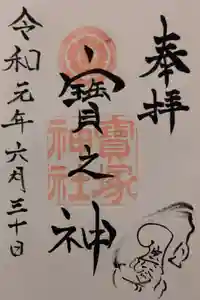 奉拝
寳之神
寳家神社
令和元年六月三十日